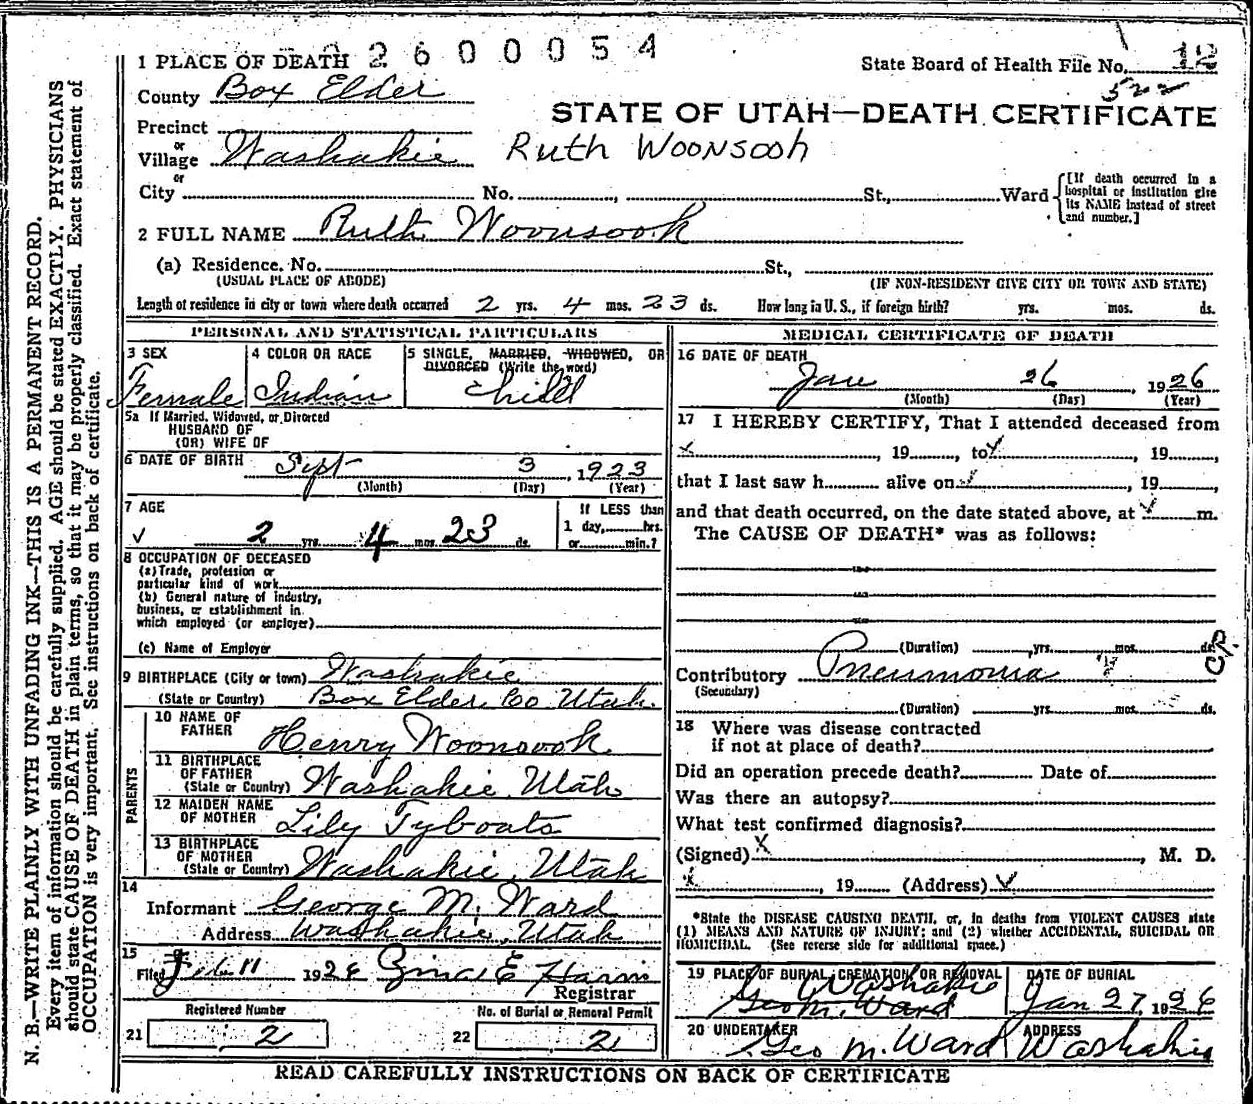 2600054
1 PLACE OF DEATH
State Board of Health File No. 12
522
County Box Elder
STATE OF UTAH—DEATH CERTIFICATE
Precinct
or
Village Washakie
Ruth Woonsook
or
City No. , St., Ward
[If death occurred in a hospital or institution give its NAME instead of street and number.]
2 FULL NAME Ruth Woonsook
(a) Residence. No. St.,
(USUAL PLACE OF ABODE) (IF NON-RESIDENT GIVE CITY OR TOWN AND STATE)
Length of residence in city or town where death occurred 2 yrs. 4 mos. 23 ds. How long in U. S., if foreign birth? yrs. mos. ds.
PERSONAL AND STATISTICAL PARTICULARS
3 SEX
Female
4 COLOR OR RACE
Indian
5 SINGLE, MARRIED, WIDOWED, OR
DIVORCED (Write the word)
child
5a If Married, Widowed, or Divorced
HUSBAND OF
(OR) WIFE OF
6 DATE OF BIRTH Sept 3, 1923
(Month) (Day) (Year)
7 AGE
2 yrs. 4 mos. 23 ds.
If LESS than
1 day, hrs.
or min.?
8 OCCUPATION OF DECEASED
(a) Trade, profession or
particular kind of work
(b) General nature of industry,
business, or establishment in
which employed (or employer)
(c) Name of Employer
9 BIRTHPLACE (City or town) Washakie
(State or Country) Box Elder Co Utah.
PARENTS
10 NAME OF
FATHER Henry Woonsook
11 BIRTHPLACE
OF FATHER
(State or Country) Washakie, Utah
12 MAIDEN NAME
OF MOTHER Lily Tyboats
13 BIRTHPLACE
OF MOTHER
(State or Country) Washakie, Utah
14
Informant George M. Ward
Address Washakie, Utah
15
Filed Feb 11 1926 E Harris
Registrar
Registered Number
21 2
No. of Burial or Removal Permit
22 2
MEDICAL CERTIFICATE OF DEATH
16 DATE OF DEATH
Jan 26, 1926
(Month) (Day) (Year)
17 I HEREBY CERTIFY, That I attended deceased from
x , 19 , to , 19 ,
that I last saw h alive on , 19 ,
and that death occurred, on the date stated above, at m.
The CAUSE OF DEATH* was as follows:
(Duration) yrs. mos. ds.
Contributory Pneumonia
(Secondary)
(Duration) yrs. mos. ds.
18 Where was disease contracted
if not at place of death?
Did an operation precede death? Date of
Was there an autopsy?
What test confirmed diagnosis?
(Signed) x , M. D.
x , 19 (Address)
*State the DISEASE CAUSING DEATH, or, in deaths from VIOLENT CAUSES state
(1) MEANS AND NATURE OF INJURY; and (2) whether ACCIDENTAL, SUICIDAL OR
HOMICIDAL. (See reverse side for additional space.)
19 PLACE OF BURIAL, CREMATION OR REMOVAL
Washakie
Geo M. Ward
DATE OF BURIAL
Jan 27, 1926
20 UNDERTAKER
Geo M. Ward
ADDRESS
Washakie
READ CAREFULLY INSTRUCTIONS ON BACK OF CERTIFICATE
N. B.—WRITE PLAINLY WITH UNFADING INK—THIS IS A PERMANENT RECORD.
Every item of information should be carefully supplied. AGE should be stated EXACTLY. PHYSICIANS
should state CAUSE OF DEATH in plain terms, so that it may be properly classified. Exact statement of
OCCUPATION is very important. See instructions on back of certificate.